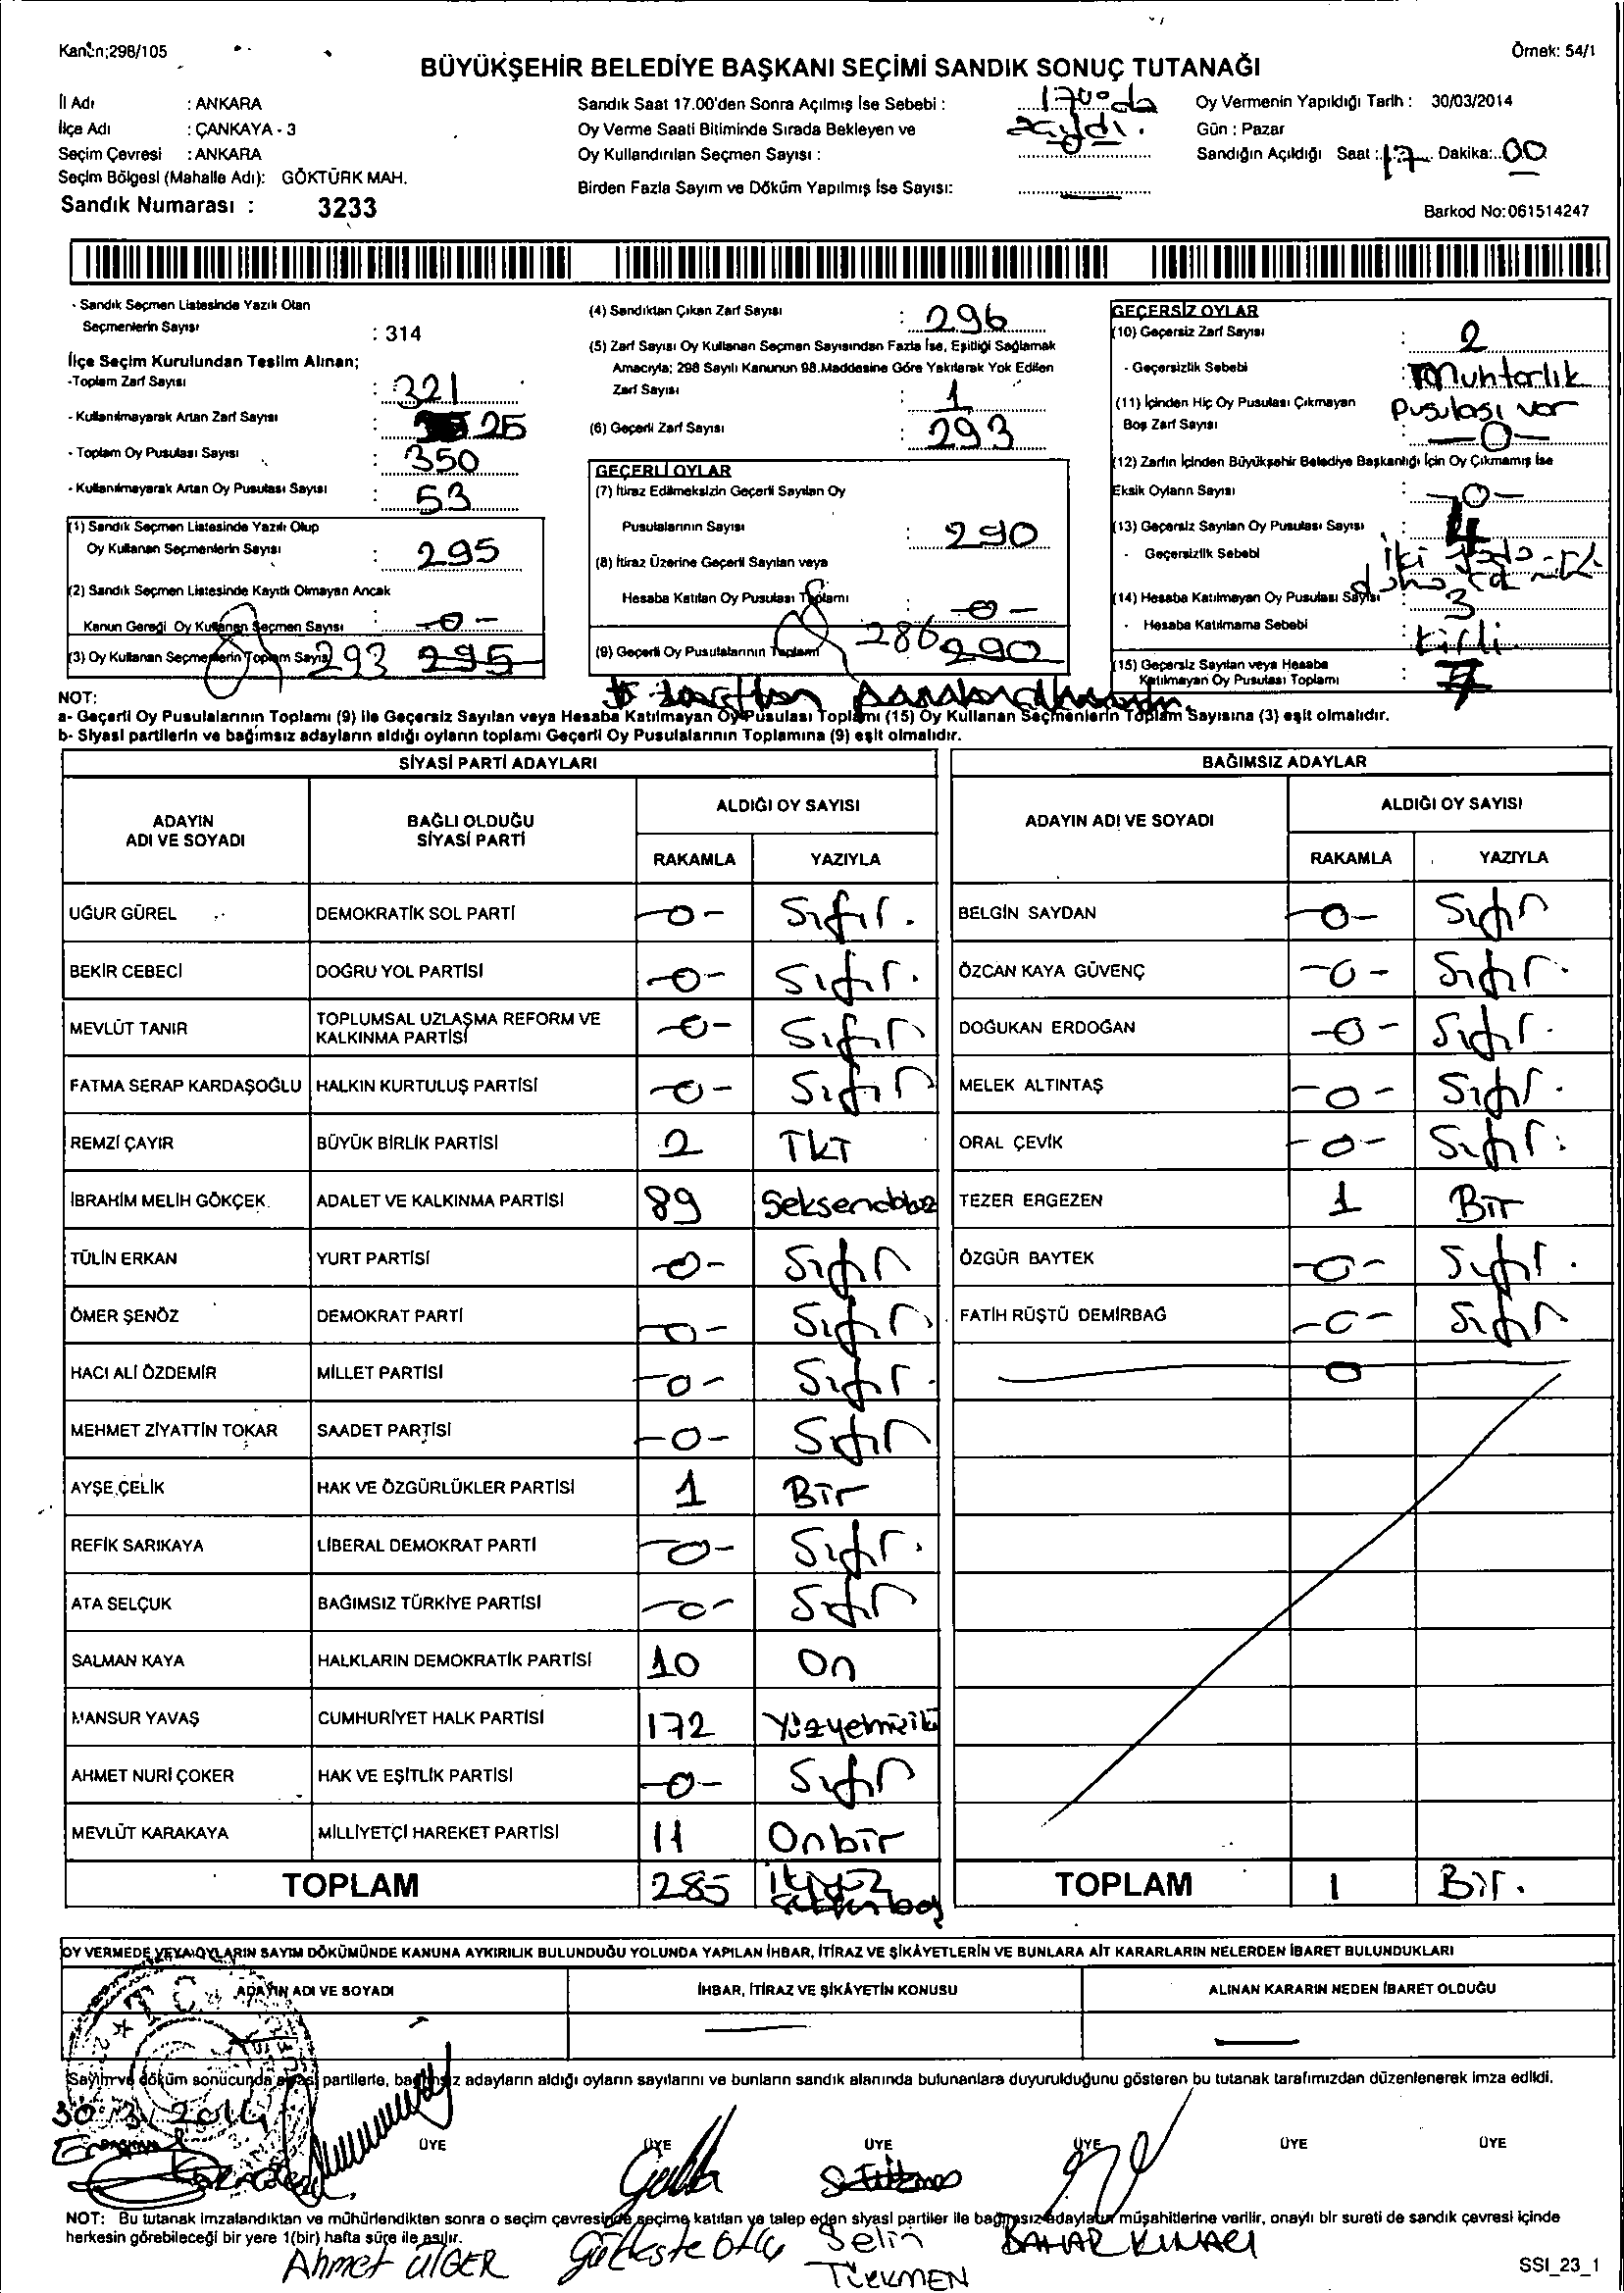 Kanun;298/105
Örnek: 54/1
BÜYÜKŞEHİR BELEDİYE BAŞKANI SEÇİMİ SANDIK SONUÇ TUTANAĞI
İl Adı : ANKARA
İlçe Adı : ÇANKAYA - 3
Seçim Çevresi : ANKARA
Seçim Bölgesi (Mahalle Adı): GÖKTÜRK MAH.
Sandık Numarası : 3233
Sandık Saat 17.00'den Sonra Açılmış İse Sebebi : 1700 da
Oy Verme Saati Bitiminde Sırada Bekleyen ve açıldı.
Oy Kullandırılan Seçmen Sayısı :
Birden Fazla Sayım ve Döküm Yapılmış İse Sayısı:
Oy Vermenin Yapıldığı Tarih : 30/03/2014
Gün : Pazar
Sandığın Açıldığı Saat : 17 Dakika: 00
Barkod No:061514247
- Sandık Seçmen Listesinde Yazılı Olan
Seçmenlerin Sayısı : 314
İlçe Seçim Kurulundan Teslim Alınan;
-Toplam Zarf Sayısı : 321
- Kullanılmayarak Artan Zarf Sayısı : 25
- Toplam Oy Pusulası Sayısı : 350
- Kullanılmayarak Artan Oy Pusulası Sayısı : 53
(1) Sandık Seçmen Listesinde Yazılı Olup
Oy Kullanan Seçmenlerin Sayısı : 295
(2) Sandık Seçmen Listesinde Kayıtlı Olmayan Ancak
Kanun Gereği Oy Kullanan Seçmen Sayısı : -0-
(3) Oy Kullanan Seçmenlerin Toplam Sayısı 293 295
(4) Sandıktan Çıkan Zarf Sayısı : 296
(5) Zarf Sayısı Oy Kullanan Seçmen Sayısından Fazla İse, Eşitliği Sağlamak
Amacıyla; 298 Sayılı Kanunun 98.Maddesine Göre Yakılarak Yok Edilen
Zarf Sayısı : 1
(6) Geçerli Zarf Sayısı : 293
GEÇERLİ OYLAR
(7) İtiraz Edilmeksizin Geçerli Sayılan Oy
Pusulalarının Sayısı : 290
(8) İtiraz Üzerine Geçerli Sayılan veya
Hesaba Katılan Oy Pusulası Toplamı : -0-
(9) Geçerli Oy Pusulalarının Toplamı 286 290
GEÇERSİZ OYLAR
(10) Geçersiz Zarf Sayısı : 2
- Geçersizlik Sebebi : Muhtarlık
pusulası var
(11) İçinden Hiç Oy Pusulası Çıkmayan
Boş Zarf Sayısı -0-
(12) Zarfın İçinden Büyükşehir Belediye Başkanlığı İçin Oy Çıkmamış İse
Eksik Oyların Sayısı : -0-
(13) Geçersiz Sayılan Oy Pusulası Sayısı : 4
- Geçersizlik Sebebi : iki
(14) Hesaba Katılmayan Oy Pusulası Sayısı 3
- Hesaba Katılmama Sebebi : kirli
(15) Geçersiz Sayılan veya Hesaba
Katılmayan Oy Pusulası Toplamı : 7
NOT:
a- Geçerli Oy Pusulalarının Toplamı (9) ile Geçersiz Sayılan veya Hesaba Katılmayan Oy Pusulası Toplamı (15) Oy Kullanan Seçmenlerin Toplam Sayısına (3) eşit olmalıdır.
b- Siyasi partilerin ve bağımsız adayların aldığı oyların toplamı Geçerli Oy Pusulalarının Toplamına (9) eşit olmalıdır.
SİYASİ PARTİ ADAYLARI
ADAYIN ADI VE SOYADI
BAĞLI OLDUĞU SİYASİ PARTİ
ALDIĞI OY SAYISI
RAKAMLA YAZIYLA
UĞUR GÜREL DEMOKRATİK SOL PARTİ -0- Sıfır.
BEKİR CEBECİ DOĞRU YOL PARTİSİ -0- Sıfır.
MEVLÜT TANIR TOPLUMSAL UZLAŞMA REFORM VE KALKINMA PARTİSİ -0- Sıfır
FATMA SERAP KARDAŞOĞLU HALKIN KURTULUŞ PARTİSİ -0- Sıfır
REMZİ ÇAYIR BÜYÜK BİRLİK PARTİSİ 2 İki
İBRAHİM MELİH GÖKÇEK ADALET VE KALKINMA PARTİSİ 89 Seksendokuz
TÜLİN ERKAN YURT PARTİSİ -0- Sıfır
ÖMER ŞENÖZ DEMOKRAT PARTİ -0- Sıfır
HACI ALİ ÖZDEMİR MİLLET PARTİSİ -0- Sıfır.
MEHMET ZİYATTİN TOKAR SAADET PARTİSİ -0- Sıfır
AYŞE ÇELİK HAK VE ÖZGÜRLÜKLER PARTİSİ 1 Bir
REFİK SARIKAYA LİBERAL DEMOKRAT PARTİ -0- Sıfır.
ATA SELÇUK BAĞIMSIZ TÜRKİYE PARTİSİ -0- Sıfır
SALMAN KAYA HALKLARIN DEMOKRATİK PARTİSİ 10 On
MANSUR YAVAŞ CUMHURİYET HALK PARTİSİ 172 Yüzyetmişiki
AHMET NURİ ÇOKER HAK VE EŞİTLİK PARTİSİ -0- Sıfır
MEVLÜT KARAKAYA MİLLİYETÇİ HAREKET PARTİSİ 11 Onbir
TOPLAM 285 ikiyüz seksenbeş
BAĞIMSIZ ADAYLAR
ADAYIN ADI VE SOYADI
ALDIĞI OY SAYISI
RAKAMLA YAZIYLA
BELGİN SAYDAN -0- Sıfır
ÖZCAN KAYA GÜVENÇ -0- Sıfır.
DOĞUKAN ERDOĞAN -0- Sıfır.
MELEK ALTINTAŞ -0- Sıfır.
ORAL ÇEVİK -0- Sıfır.
TEZER ERGEZEN 1 Bir
ÖZGÜR BAYTEK -0- Sıfır.
FATİH RÜŞTÜ DEMİRBAĞ -0- Sıfır
0
TOPLAM 1 Bir.
OY VERMEDE VEYA OYLARIN SAYIM DÖKÜMÜNDE KANUNA AYKIRILIK BULUNDUĞU YOLUNDA YAPILAN İHBAR, İTİRAZ VE ŞİKÂYETLERİN VE BUNLARA AİT KARARLARIN NELERDEN İBARET BULUNDUKLARI
ADAYIN ADI VE SOYADI İHBAR, İTİRAZ VE ŞİKÂYETİN KONUSU ALINAN KARARIN NEDEN İBARET OLDUĞU
T.C.
Sayım ve döküm sonucunda siyasi partilerle, bağımsız adayların aldığı oyların sayılarını ve bunların sandık alanında bulunanlara duyurulduğunu gösteren bu tutanak tarafımızdan düzenlenerek imza edildi.
30/3/2014
BAŞKAN ÜYE ÜYE ÜYE ÜYE ÜYE ÜYE
NOT: Bu tutanak imzalandıktan ve mühürlendikten sonra o seçim çevresinde seçime katılan ve talep eden siyasi partiler ile bağımsız adayların müşahitlerine verilir, onaylı bir sureti de sandık çevresi içinde
herkesin görebileceği bir yere 1(bir) hafta süre ile asılır.
Ahmet ÜLGER Selin TÜRKMEN BAHAR KINACI
SSI_23_1